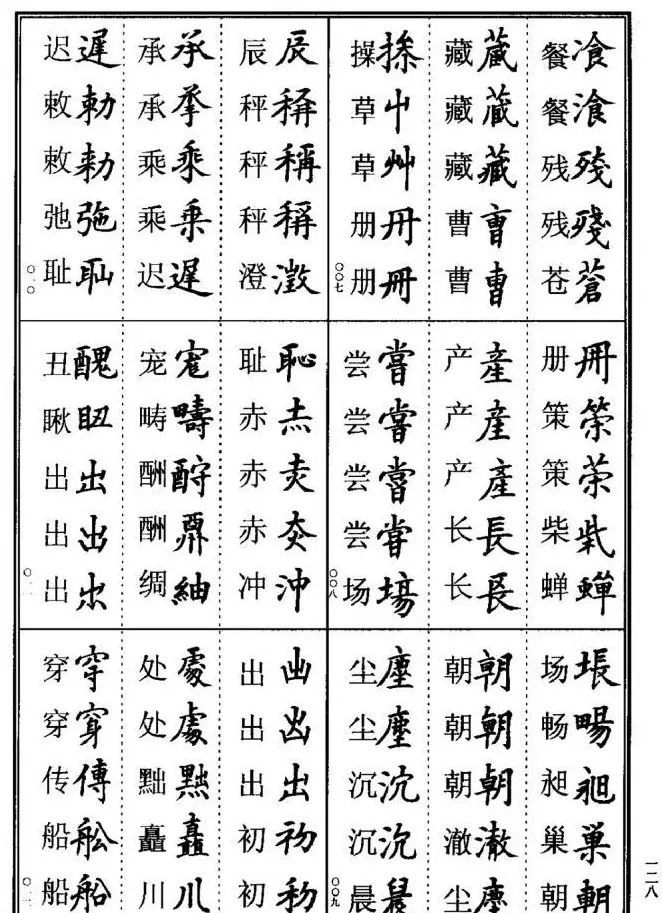 餐飡 餐湌 残殘 残殘 苍蒼
藏蔵 藏蔵 藏藏 曹曺 曹曹
操捺 草屮 草艸 册冊 册冊
〇〇七
册冊 策筞 策茦 柴 蝉蟬
产產 产産 产產 长長 长镸
尝嘗 尝甞 尝嘗 尝甞 场場
〇〇八
场塲 畅暘 昶昶 巢巢 朝朝
朝朝 朝朝 朝朝 澈澈 尘塵
尘塵 尘塵 沉沉 沉沉 晨晨
〇〇九
辰辰 秤稱 秤稱 秤稱 澄澂
承承 承 乘乘 乘乗 迟遲
迟遲 敕勅 敕勑 弛 耻耻
〇一〇
耻恥 赤 赤 赤 冲沖
宠 畴疇 酬酧 酬 绸紬
丑醜 瞅 出出 出出 出
〇一一
出 出 出出 初初 初
处處 处處 黜黜 矗矗 川川
穿穿 穿穿 传傳 船舩 船船
〇一二
一二八